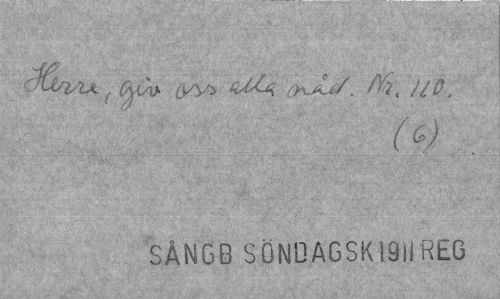 Herre, giv oss alla nåd. Nr. 110.
(6)
SÅNGB SÖNDAGSK 1911 REG